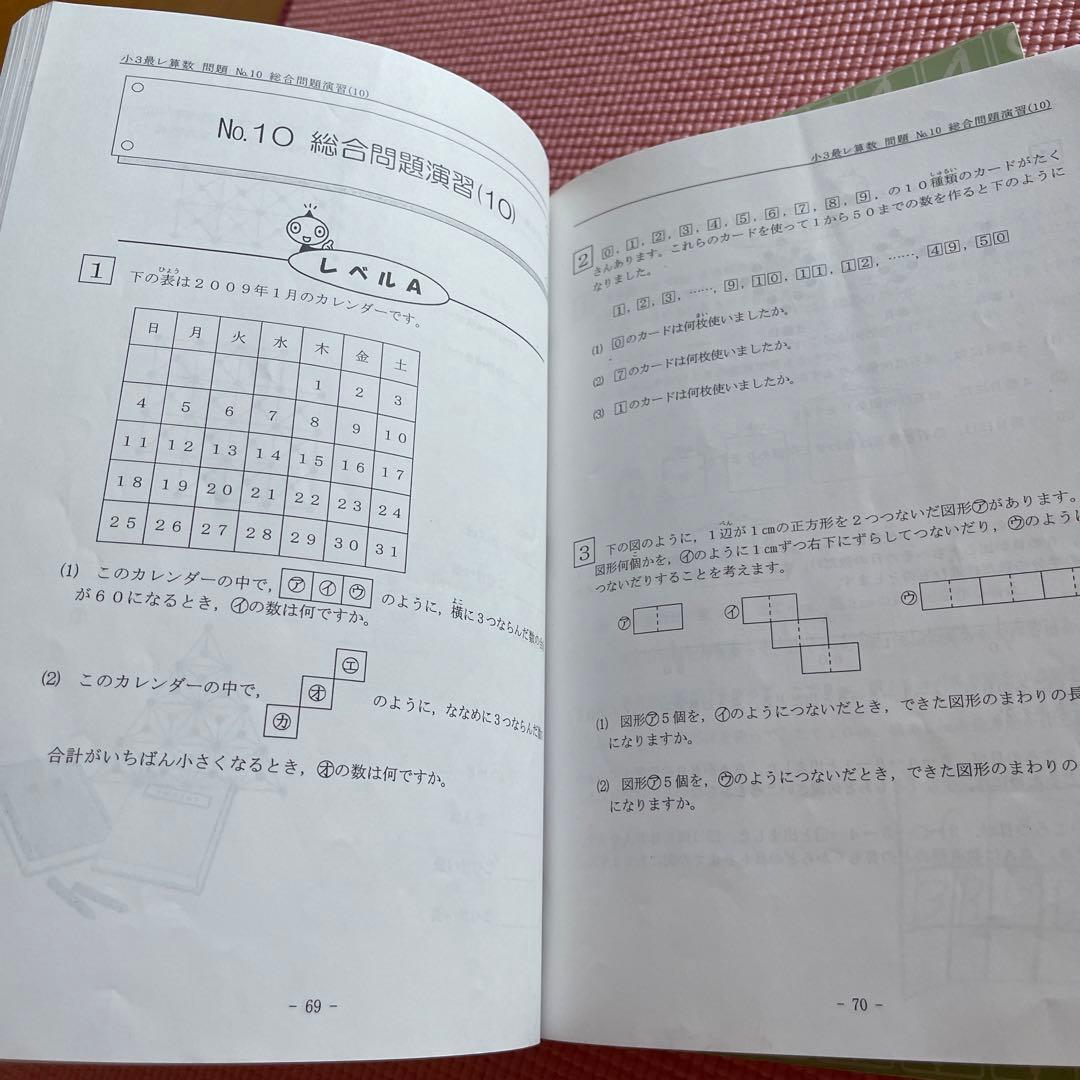 小3最レ算数 問題 №10 総合問題演習(10)
№10 総合問題演習(10)
レベルA
1 下の表は2009年1月のカレンダーです。
ひょう
日 月 火 水 木 金 土
1 2 3
4 5 6 7 8 9 10
11 12 13 14 15 16 17
18 19 20 21 22 23 24
25 26 27 28 29 30 31
(1) このカレンダーの中で，㋐㋑㋒のように，横に3つならんだ数の
よこ
が60になるとき，㋑の数は何ですか。
㋓
(2) このカレンダーの中で， ㋔ のように，ななめに3つならんだ
㋕
合計がいちばん小さくなるとき，㋔の数は何ですか。
- 69 -
小3最レ算数 問題 №10 総合問題演習(10)
2 0，1，2，3，4，5，6，7，8，9，の10種類のカードがたく
しゅるい
さんあります。これらのカードを使って1から50までの数を作ると下のように
なりました。
1，2，3，……，9，10，11，12，……，49，50
(1) 0のカードは何枚使いましたか。
まい
(2) 7のカードは何枚使いましたか。
(3) 1のカードは何枚使いましたか。
3 下の図のように，1辺が1cmの正方形を2つつないだ図形㋐があります。
べん
図形何個かを，㋑のように1cmずつ右下にずらしてつないだり，㋒のように
こ
つないだりすることを考えます。
㋐ ㋑ ㋒
(1) 図形㋐5個を，㋑のようにつないだとき，できた図形のまわりの長
になりますか。
(2) 図形㋐5個を，㋒のようにつないだとき，できた図形のまわりの
になりますか。
- 70 -